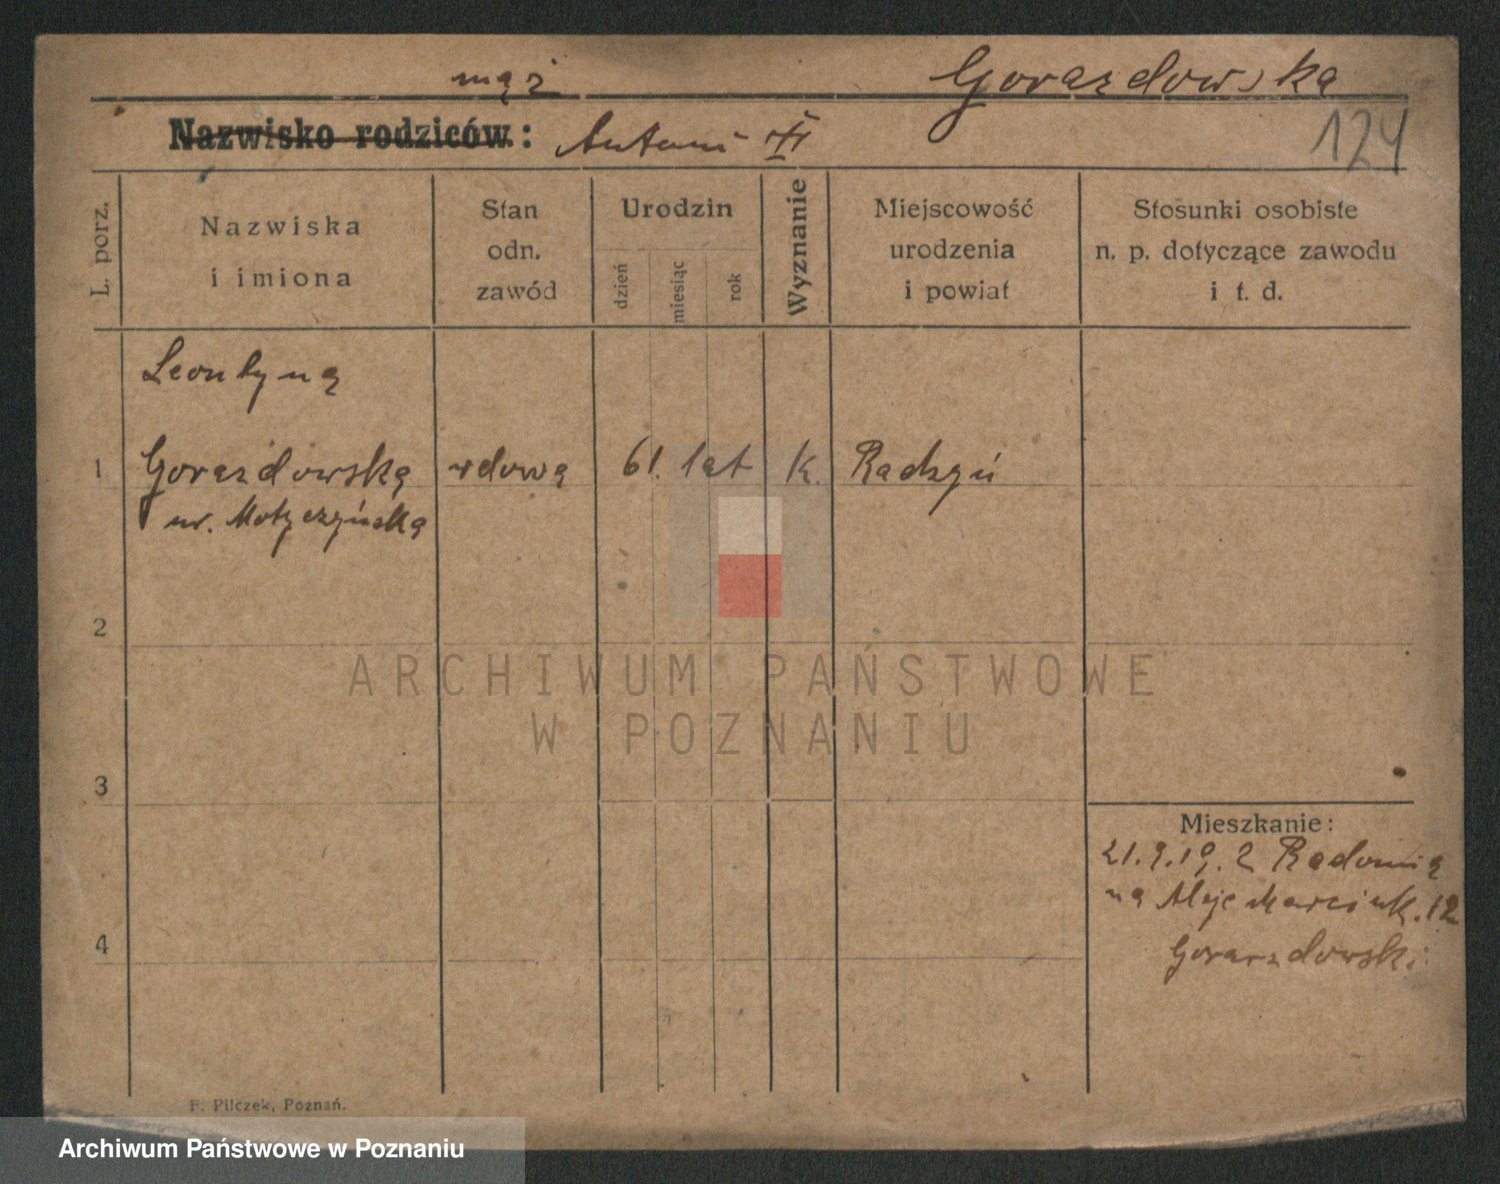 mąż Gorazdowska
Nazwisko rodziców: Antoni
124
L. porz.
Nazwiska
i imiona
Stan
odn.
zawód
Urodzin
dzień
miesiąc
rok
Wyznanie
Miejscowość
urodzenia
i powiat
Stosunki osobiste
n. p. dotyczące zawodu
i t. d.
Leontyna
1 Gorazdowska wdowa 61. lat k. Radzyń
ur. Motyczyńska
2
3
4
Mieszkanie:
21.9.19. z Radomia
na Aleje Marcink. 12
Gorazdowski
F. Pilczek, Poznań.
ARCHIWUM PAŃSTWOWE
W POZNANIU
Archiwum Państwowe w Poznaniu